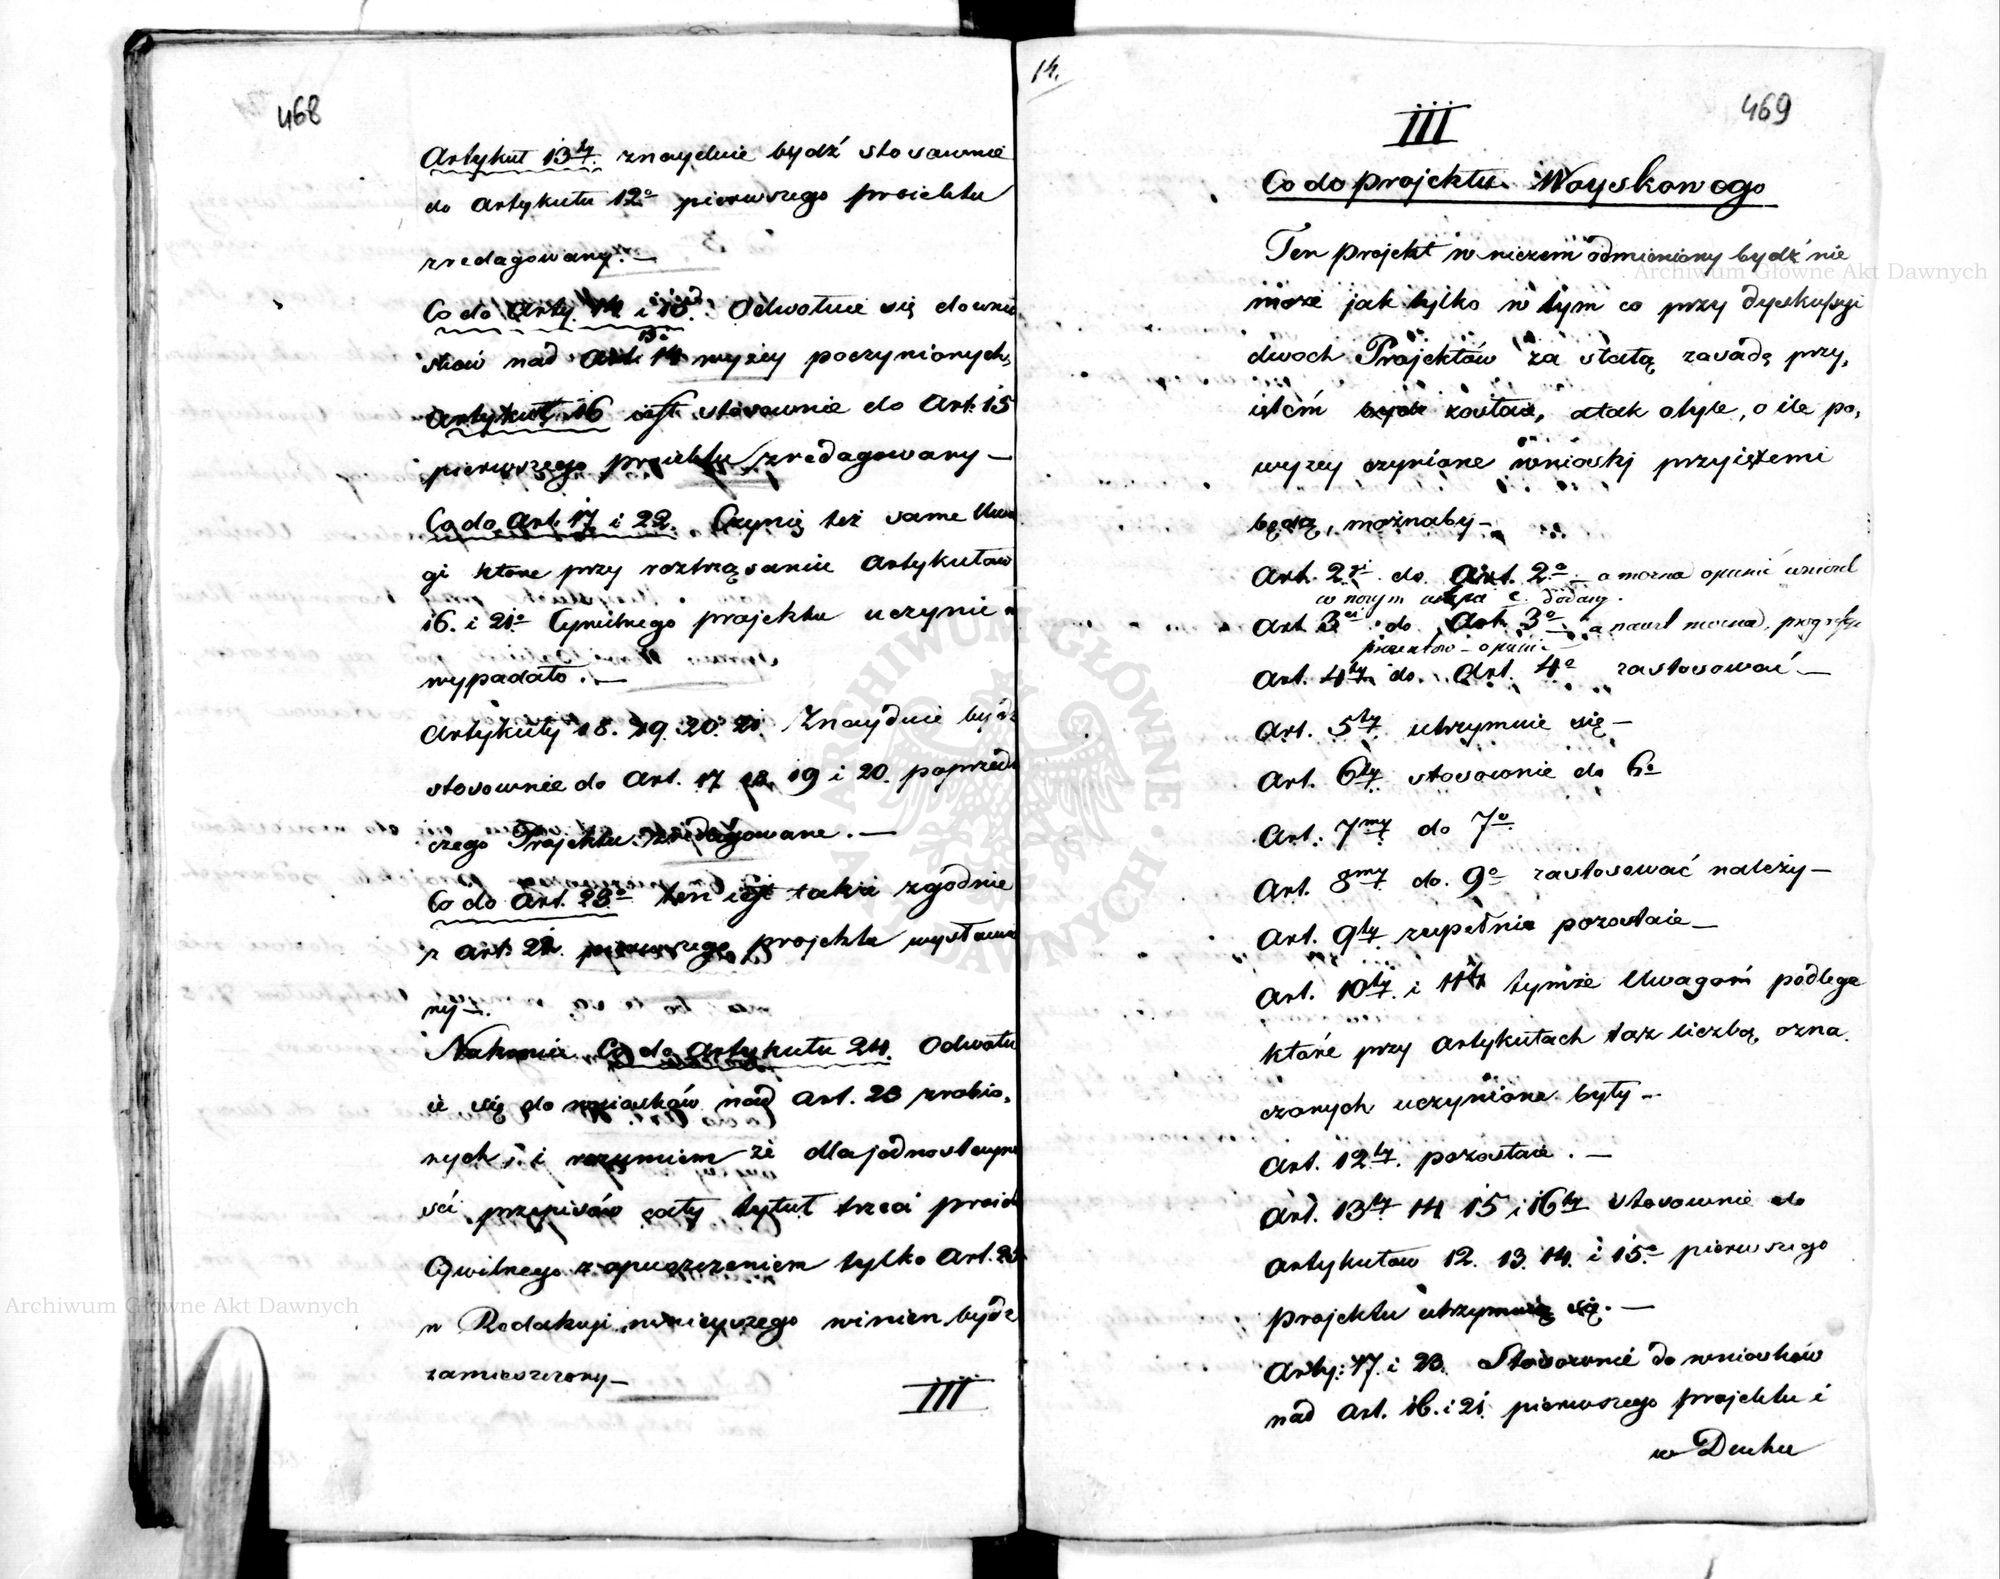 468
Artykuł 13ty znayduie bydź stosownie
do Artykułu 12o pierwszego proiektu
zredagowany. —
Co do Arty. 14 i 15. Odwołuie się do wnio
sków nad Art. 14 wyżey poczynionych,
13.
Artykuł 16 iest stosownie do Art. 15
pierwszego proiektu zredagowany —
Co do Art. 17 i 22. Czynię też same Uwa
gi które przy roztrząsaniu Artykułow
16. i 21o Cywilnego projektu uczynić
wypadało. —
Artykuły 18. 19. 20. 21. Znayduie bydź
stosownie do Art. 17 18. 19 i 20. poprzed
czego Projektu zredagowane. —
Co do Art. 23o ten iest także zgodnie
z Art. 22. pierwszego projektu wystawio
ny —
Nakonie Co do Artykułu 24. Odwołu
ie się do wniosków nad Art. 23 zrobio,
nych, i rozumiem że dla jednostayno
ści przepisów cały tytuł trzeci proiek
Cywilnego z opuszczeniem tylko Art. 23
w Redakcyi ninieyszego winien bydź
zamieszczony —
III
14.
469
III
Co do projektu Woyskowego
Ten projekt w niczem odmieniony bydź nie
może jak tylko w tym co przy dyskussyi
dwoch Projektów za stałą zasadę przy,
iętem zostało, atak otyle, o ile po,
wyżey czynione wnioski przyiętemi
będą, możnaby —
Art. 2gi do Art. 2o — a można opuścić
w nowym dodany.
Art 3ci do Art 3o — a nawet można
opuścić
Art. 4ty do Art. 4o zastosować —
Art. 5ty utrzymuie się —
Art. 6ty stosownie do 6o
Art. 7my do 7o
Art. 8my do 9o zastosować należy —
Art. 9ty zupełnie pozostaie —
Art. 10ty i 11ty tymże Uwagom podlega
które przy Artykułach tąż liczbą ozna
czonych uczynione były —
Art. 12ty pozostaie. —
Art. 13ty 14 15 i 16ty stosownie do
Artykułow 12. 13. 14. i 15o pierwszego
projektu utrzymuią się. —
Arty: 17. i 23. Stosownie do wniosków
nad Art. 16. i 21. pierwszego projektu i
w Duchu
Archiwum Główne Akt Dawnych
Archiwum Główne Akt Dawnych
ARCHIWUM GŁÓWNE AKT DAWNYCH